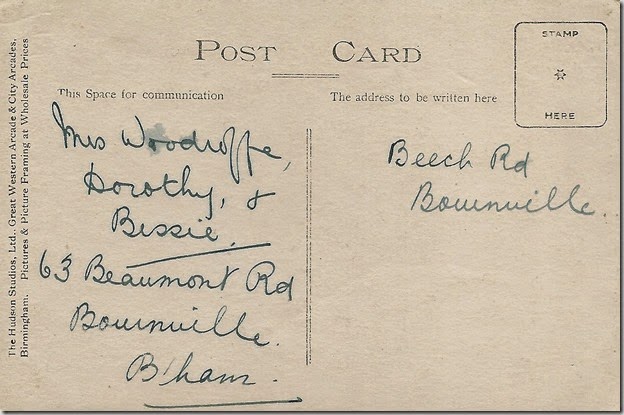 The Hudson Studios, Ltd., Great Western Arcade & City Arcades,
Birmingham. Pictures & Picture Framing at Wholesale Prices
POST CARD
STAMP
HERE
This Space for communication
Mrs Woodroffe,
Dorothy, &
Bessie.
63 Beaumont Rd
Bournville.
B'ham.
The address to be written here
Beech Rd
Bournville.